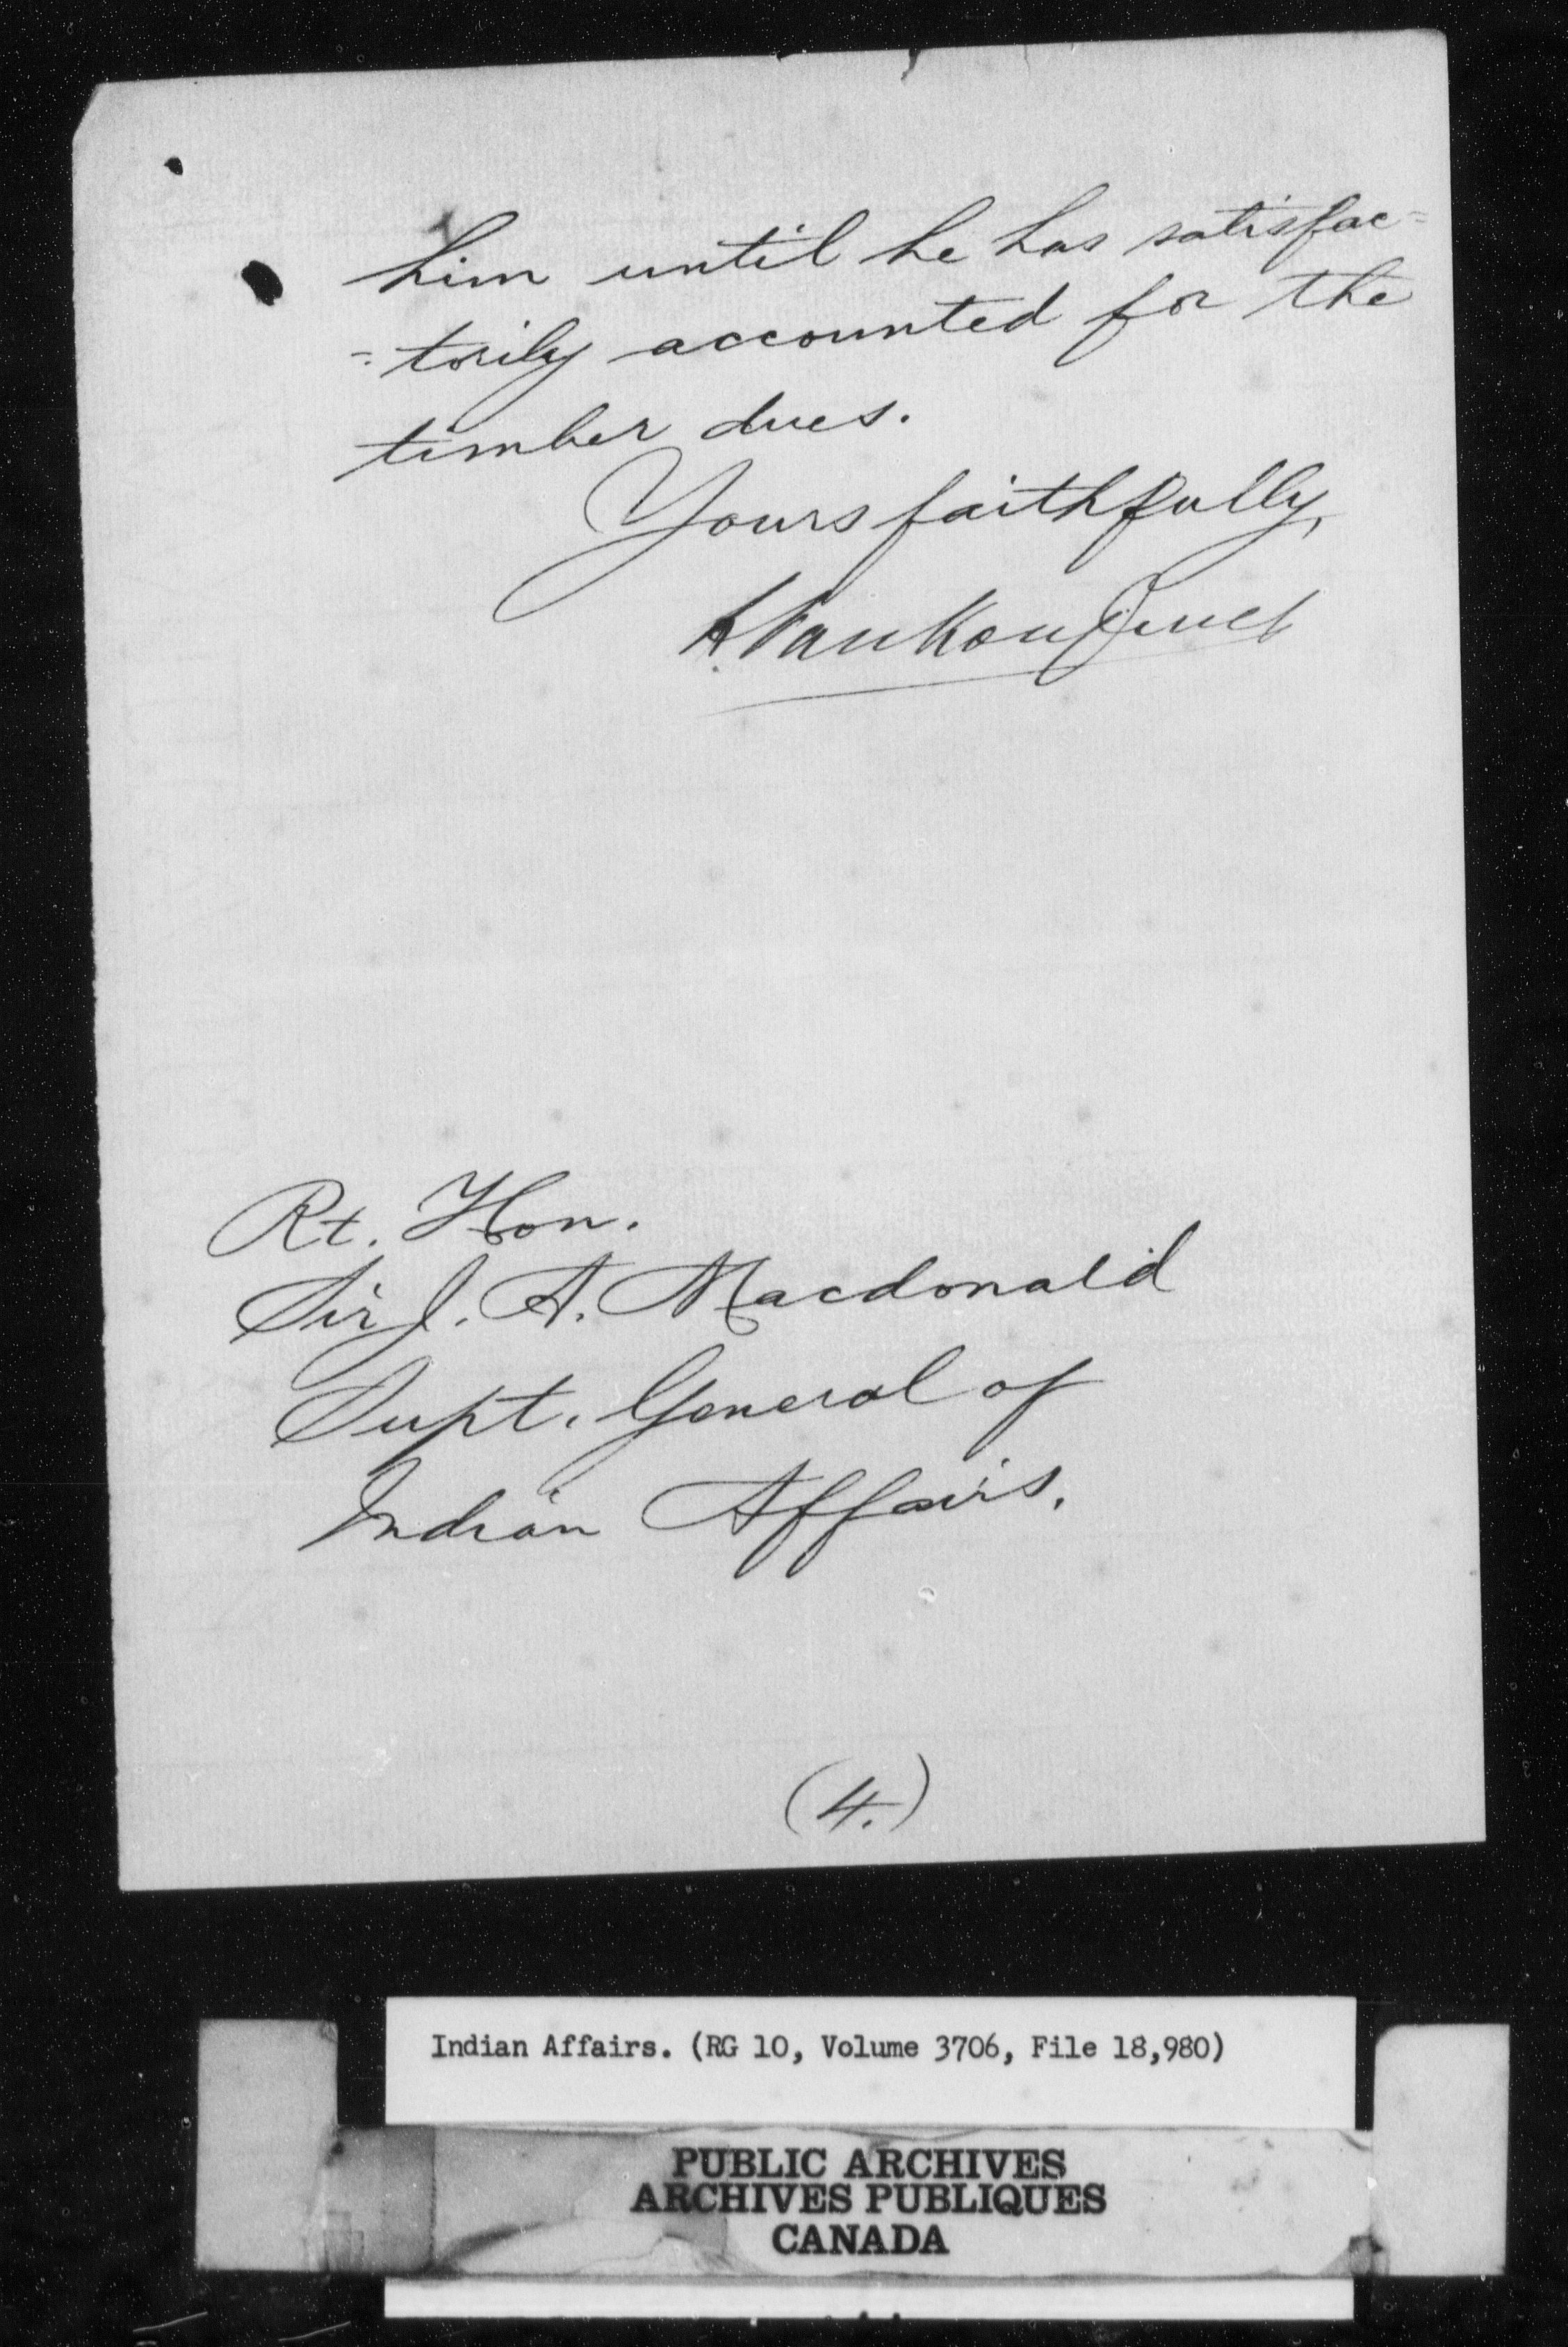 him until he has satisfac=
=torily accounted for the
timber dues.
Yours faithfully,
L VanKoughnet
Rt. Hon.
Sir J. A. Macdonald
Supt. General of
Indian Affairs.
(4.)
Indian Affairs. (RG 10, Volume 3706, File 18,980)
PUBLIC ARCHIVES
ARCHIVES PUBLIQUES
CANADA